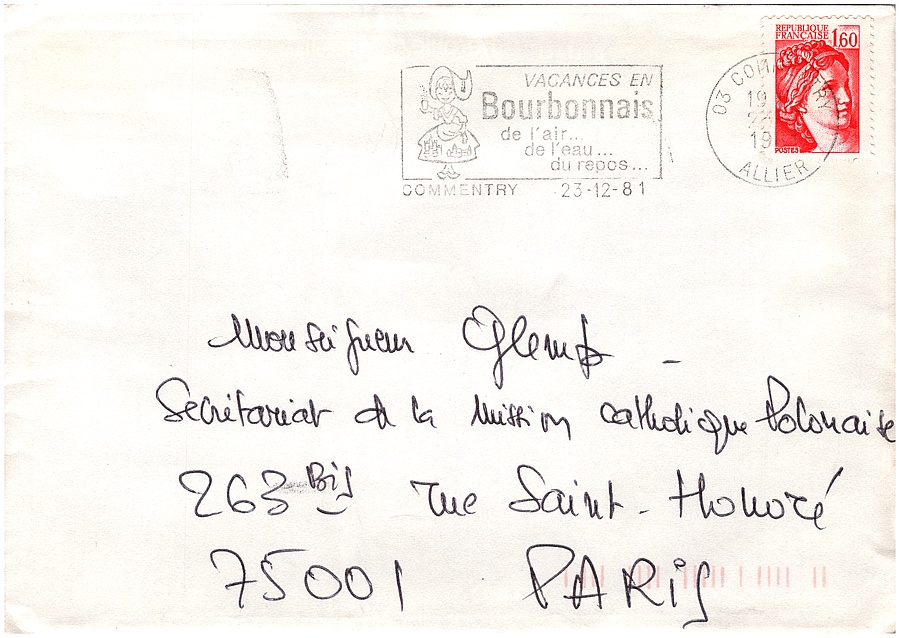 REPUBLIQUE
FRANÇAISE 1,60
POSTES
03 COMMENTRY
19
19
ALLIER
VACANCES EN
Bourbonnais
de l'air...
de l'eau...
du repos...
COMMENTRY 23-12-81
Monseigneur Glemp -
Secrétariat de la Mission catholique Polonaise
263 Bis rue Saint-Honoré
75001 PARIS